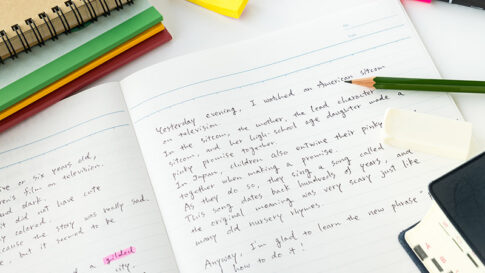 ve or six years old,
film on television.
and dark.
it did not have cute
ly colored.
because the story was really sad.
but it seemed to be
a gilded
city.
Yesterday evening, I watched an American sitcom
on television.
In the sitcom, the mother, the lead character
sitcom, and her high-school age daughter made a
pinky promise together.
In Japan, children also entwine their pinky
together when making a promise.
As they do so, they sing a song called
This song dates back hundreds of years, and
the original meaning was very scary just like
many old nursery rhymes.
Anyway, I'm glad to learn the new phrase
how to do it!